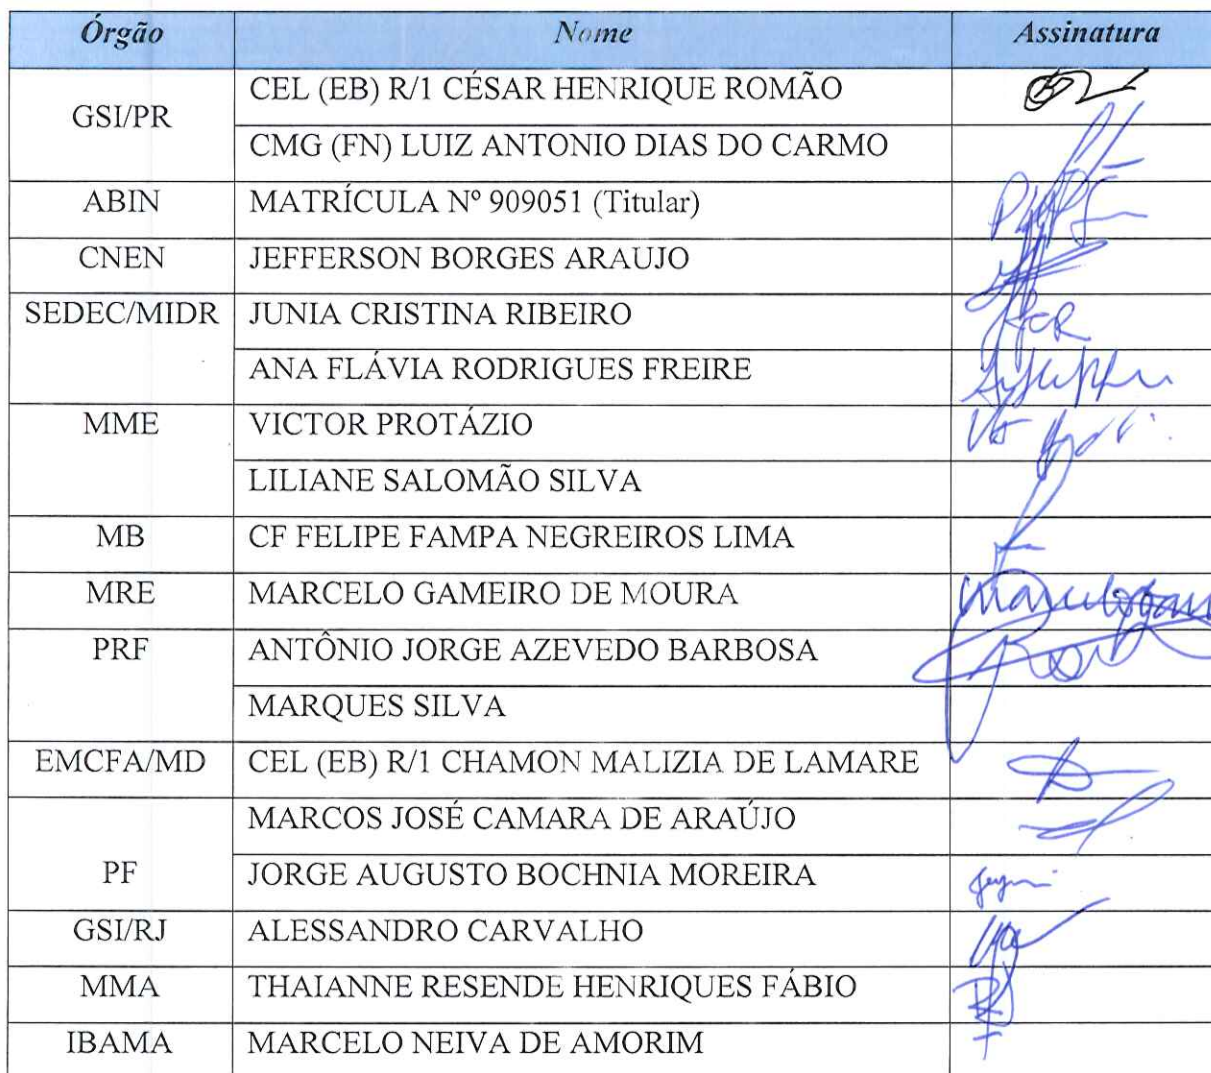 Órgão Nome Assinatura
GSI/PR CEL (EB) R/1 CÉSAR HENRIQUE ROMÃO
CMG (FN) LUIZ ANTONIO DIAS DO CARMO
ABIN MATRÍCULA Nº 909051 (Titular)
CNEN JEFFERSON BORGES ARAUJO
SEDEC/MIDR JUNIA CRISTINA RIBEIRO
ANA FLÁVIA RODRIGUES FREIRE
MME VICTOR PROTÁZIO
LILIANE SALOMÃO SILVA
MB CF FELIPE FAMPA NEGREIROS LIMA
MRE MARCELO GAMEIRO DE MOURA
PRF ANTÔNIO JORGE AZEVEDO BARBOSA
MARQUES SILVA
EMCFA/MD CEL (EB) R/1 CHAMON MALIZIA DE LAMARE
MARCOS JOSÉ CAMARA DE ARAÚJO
PF JORGE AUGUSTO BOCHNIA MOREIRA
GSI/RJ ALESSANDRO CARVALHO
MMA THAIANNE RESENDE HENRIQUES FÁBIO
IBAMA MARCELO NEIVA DE AMORIM